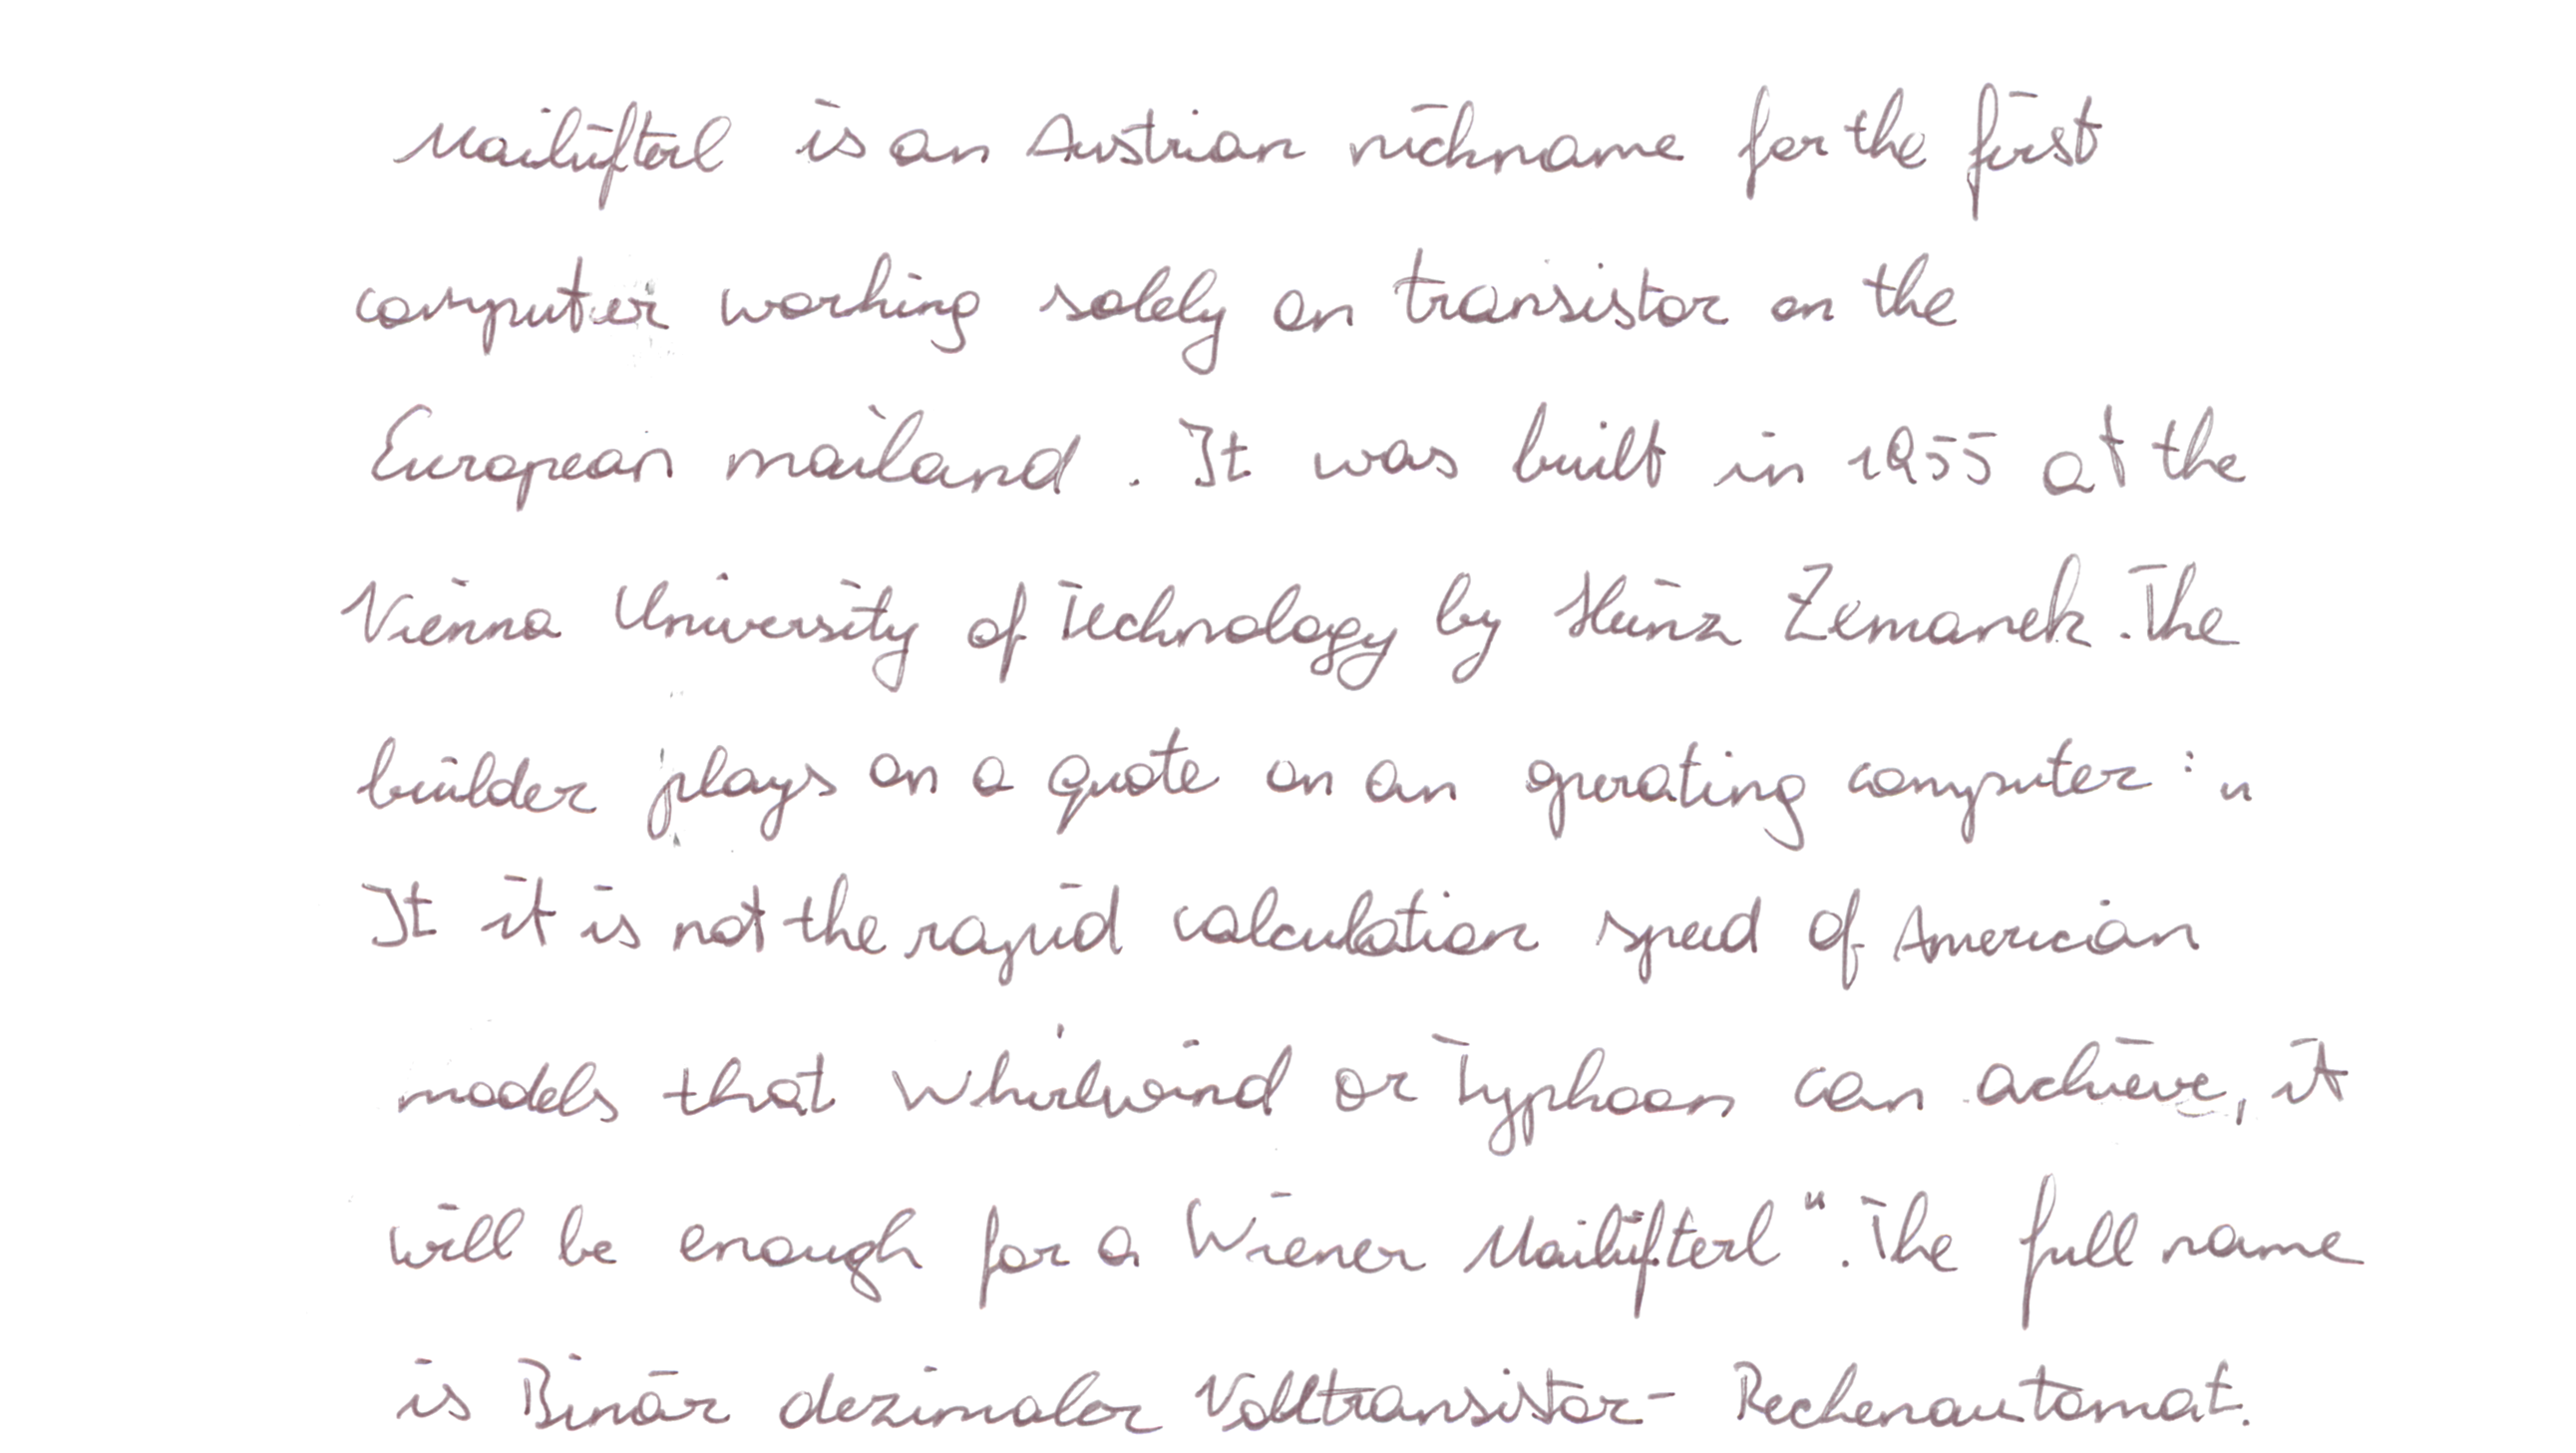 Mailüfterl is an Austrian nickname for the first
computer working solely on transistor on the
European mailand. It was built in 1955 at the
Vienna University of Technology by Heinz Zemanek. The
builder plays on a quote on an operating computer: "
It it is not the rapid calculation speed of American
models that Whirlwind or Typhoon can achieve, it
will be enough for a Wiener Mailüfterl". The full name
is Binär dezimaler Volltransistor- Rechenautomat.